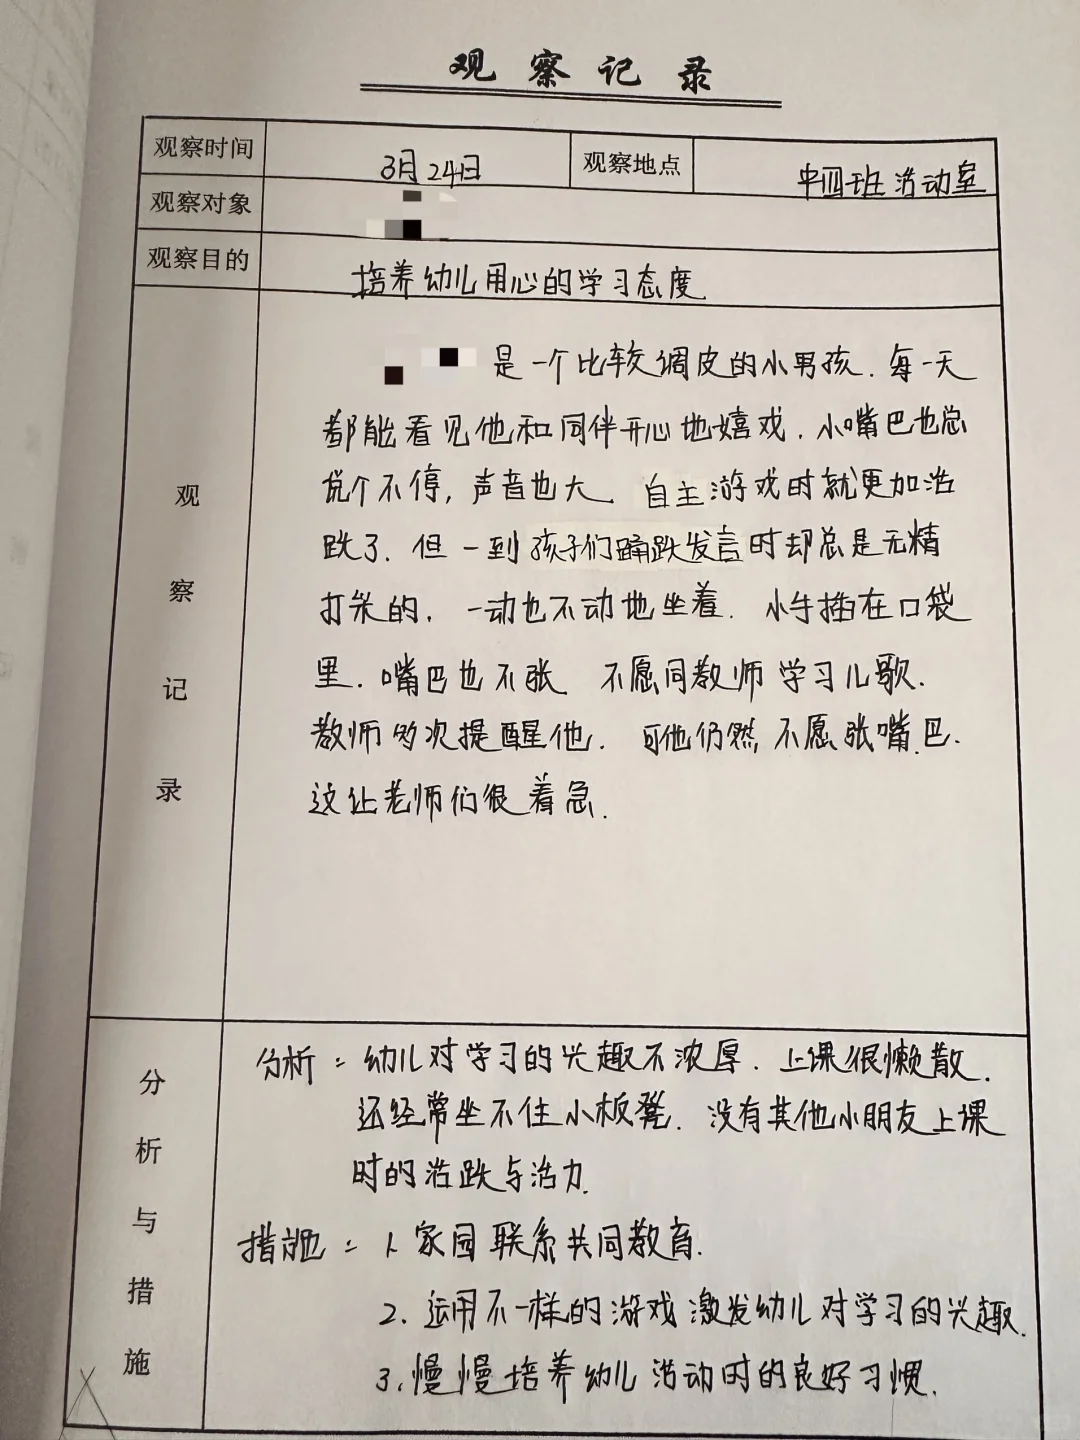 观察记录
观察时间 3月24日 观察地点 中四班活动室
观察对象
观察目的 培养幼儿用心的学习态度
观察记录
是一个比较调皮的小男孩.每一天
都能看见他和同伴开心地嬉戏.小嘴巴也总
说个不停,声音也大.自主游戏时就更加活
跃了.但一到孩子们踊跃发言时却总是无精
打采的.一动也不动地坐着.小手插在口袋
里.嘴巴也不张.不愿同教师学习儿歌.
教师多次提醒他.可他仍然不愿张嘴巴.
这让老师们很着急.
分析与措施
分析:幼儿对学习的兴趣不浓厚.上课很懒散.
还经常坐不住小板凳.没有其他小朋友上课
时的活跃与活力.
措施:1.家园联系共同教育.
2.运用不一样的游戏激发幼儿对学习的兴趣.
3.慢慢培养幼儿活动时的良好习惯.